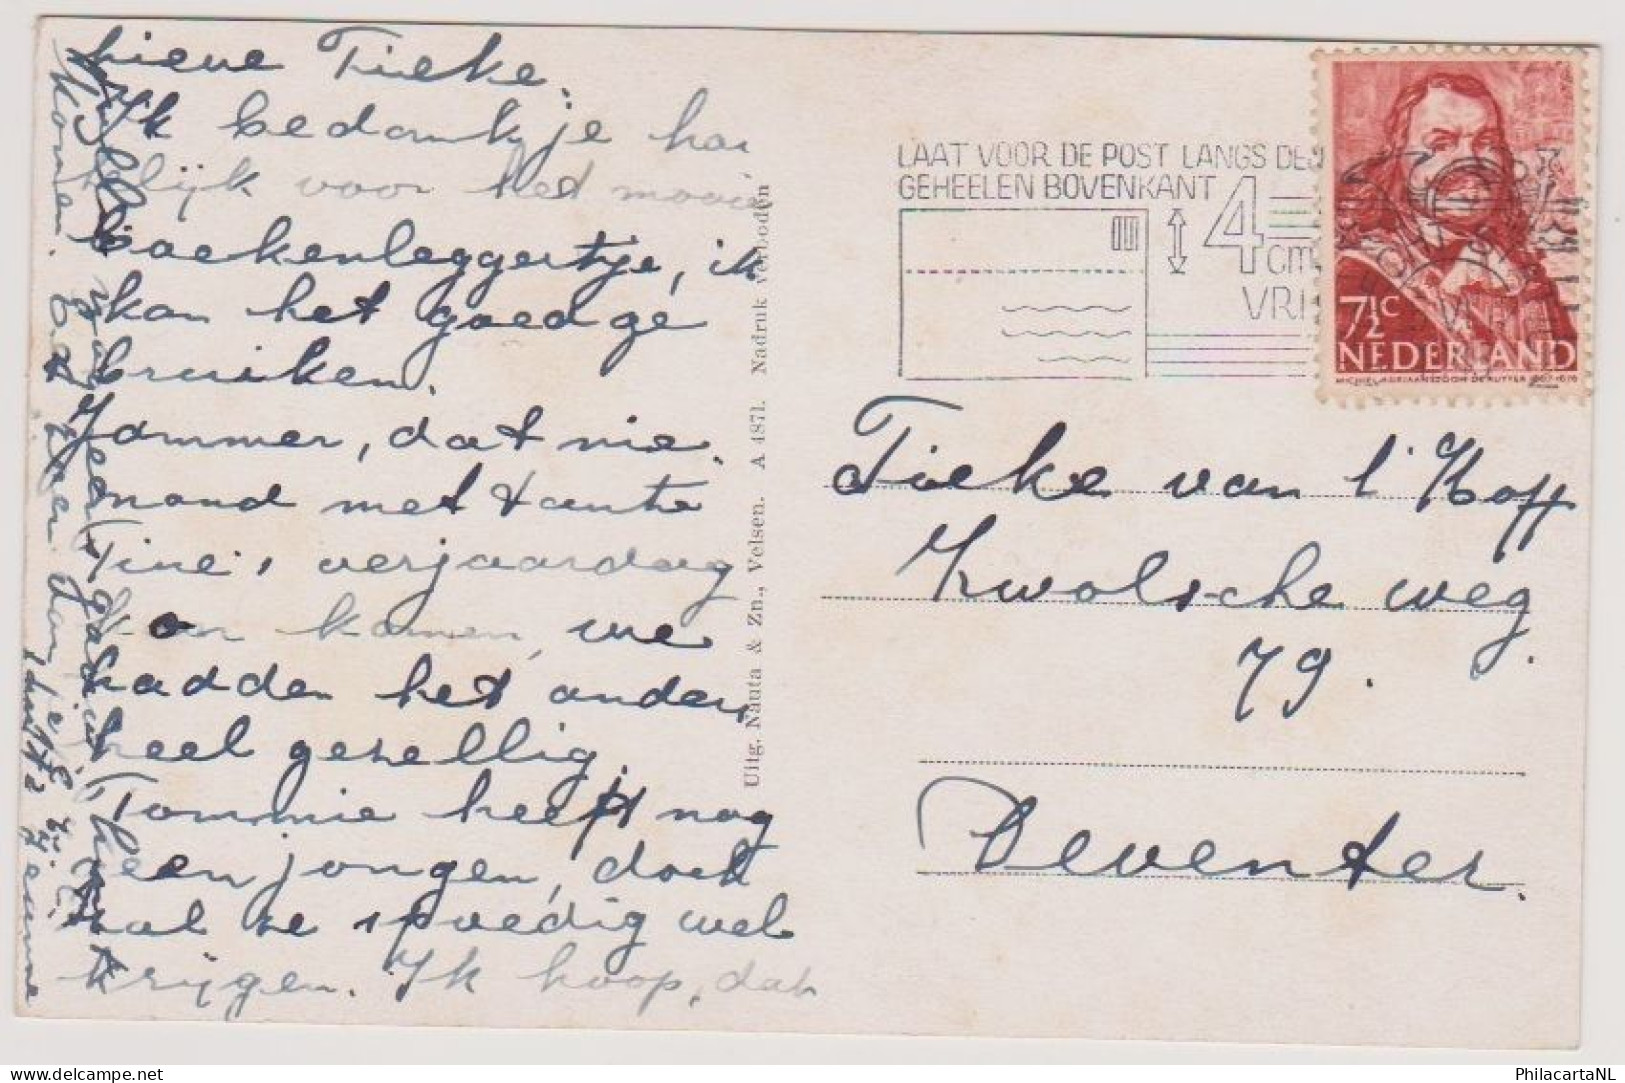 Lieve Tieke,
Ik bedank je har
telijk voor het mooie
boekenleggertje, ik
kan het goed ge
bruiken.
Jammer, dat nie
mand met tante
Tine's verjaardag
kon komen, we
hadden het anders
heel gezellig.
Tommie heeft nog
geen jongen, doch
zal ze spoedig wel
krijgen. Ik hoop, dat
jullie
gauw
komen.
Uitg. Nauta & Zn., Velsen. A 4871. Nadruk verboden
LAAT VOOR DE POST LANGS DE
GEHEELEN BOVENKANT
4 cm
VRIJ
7½c
NEDERLAND
MICHIEL ADRIAANSZOON DE RUYTER 1607-1676
Tieke van 't Hoff
Zwolsche weg
79.
Deventer.
PhilacartaNL